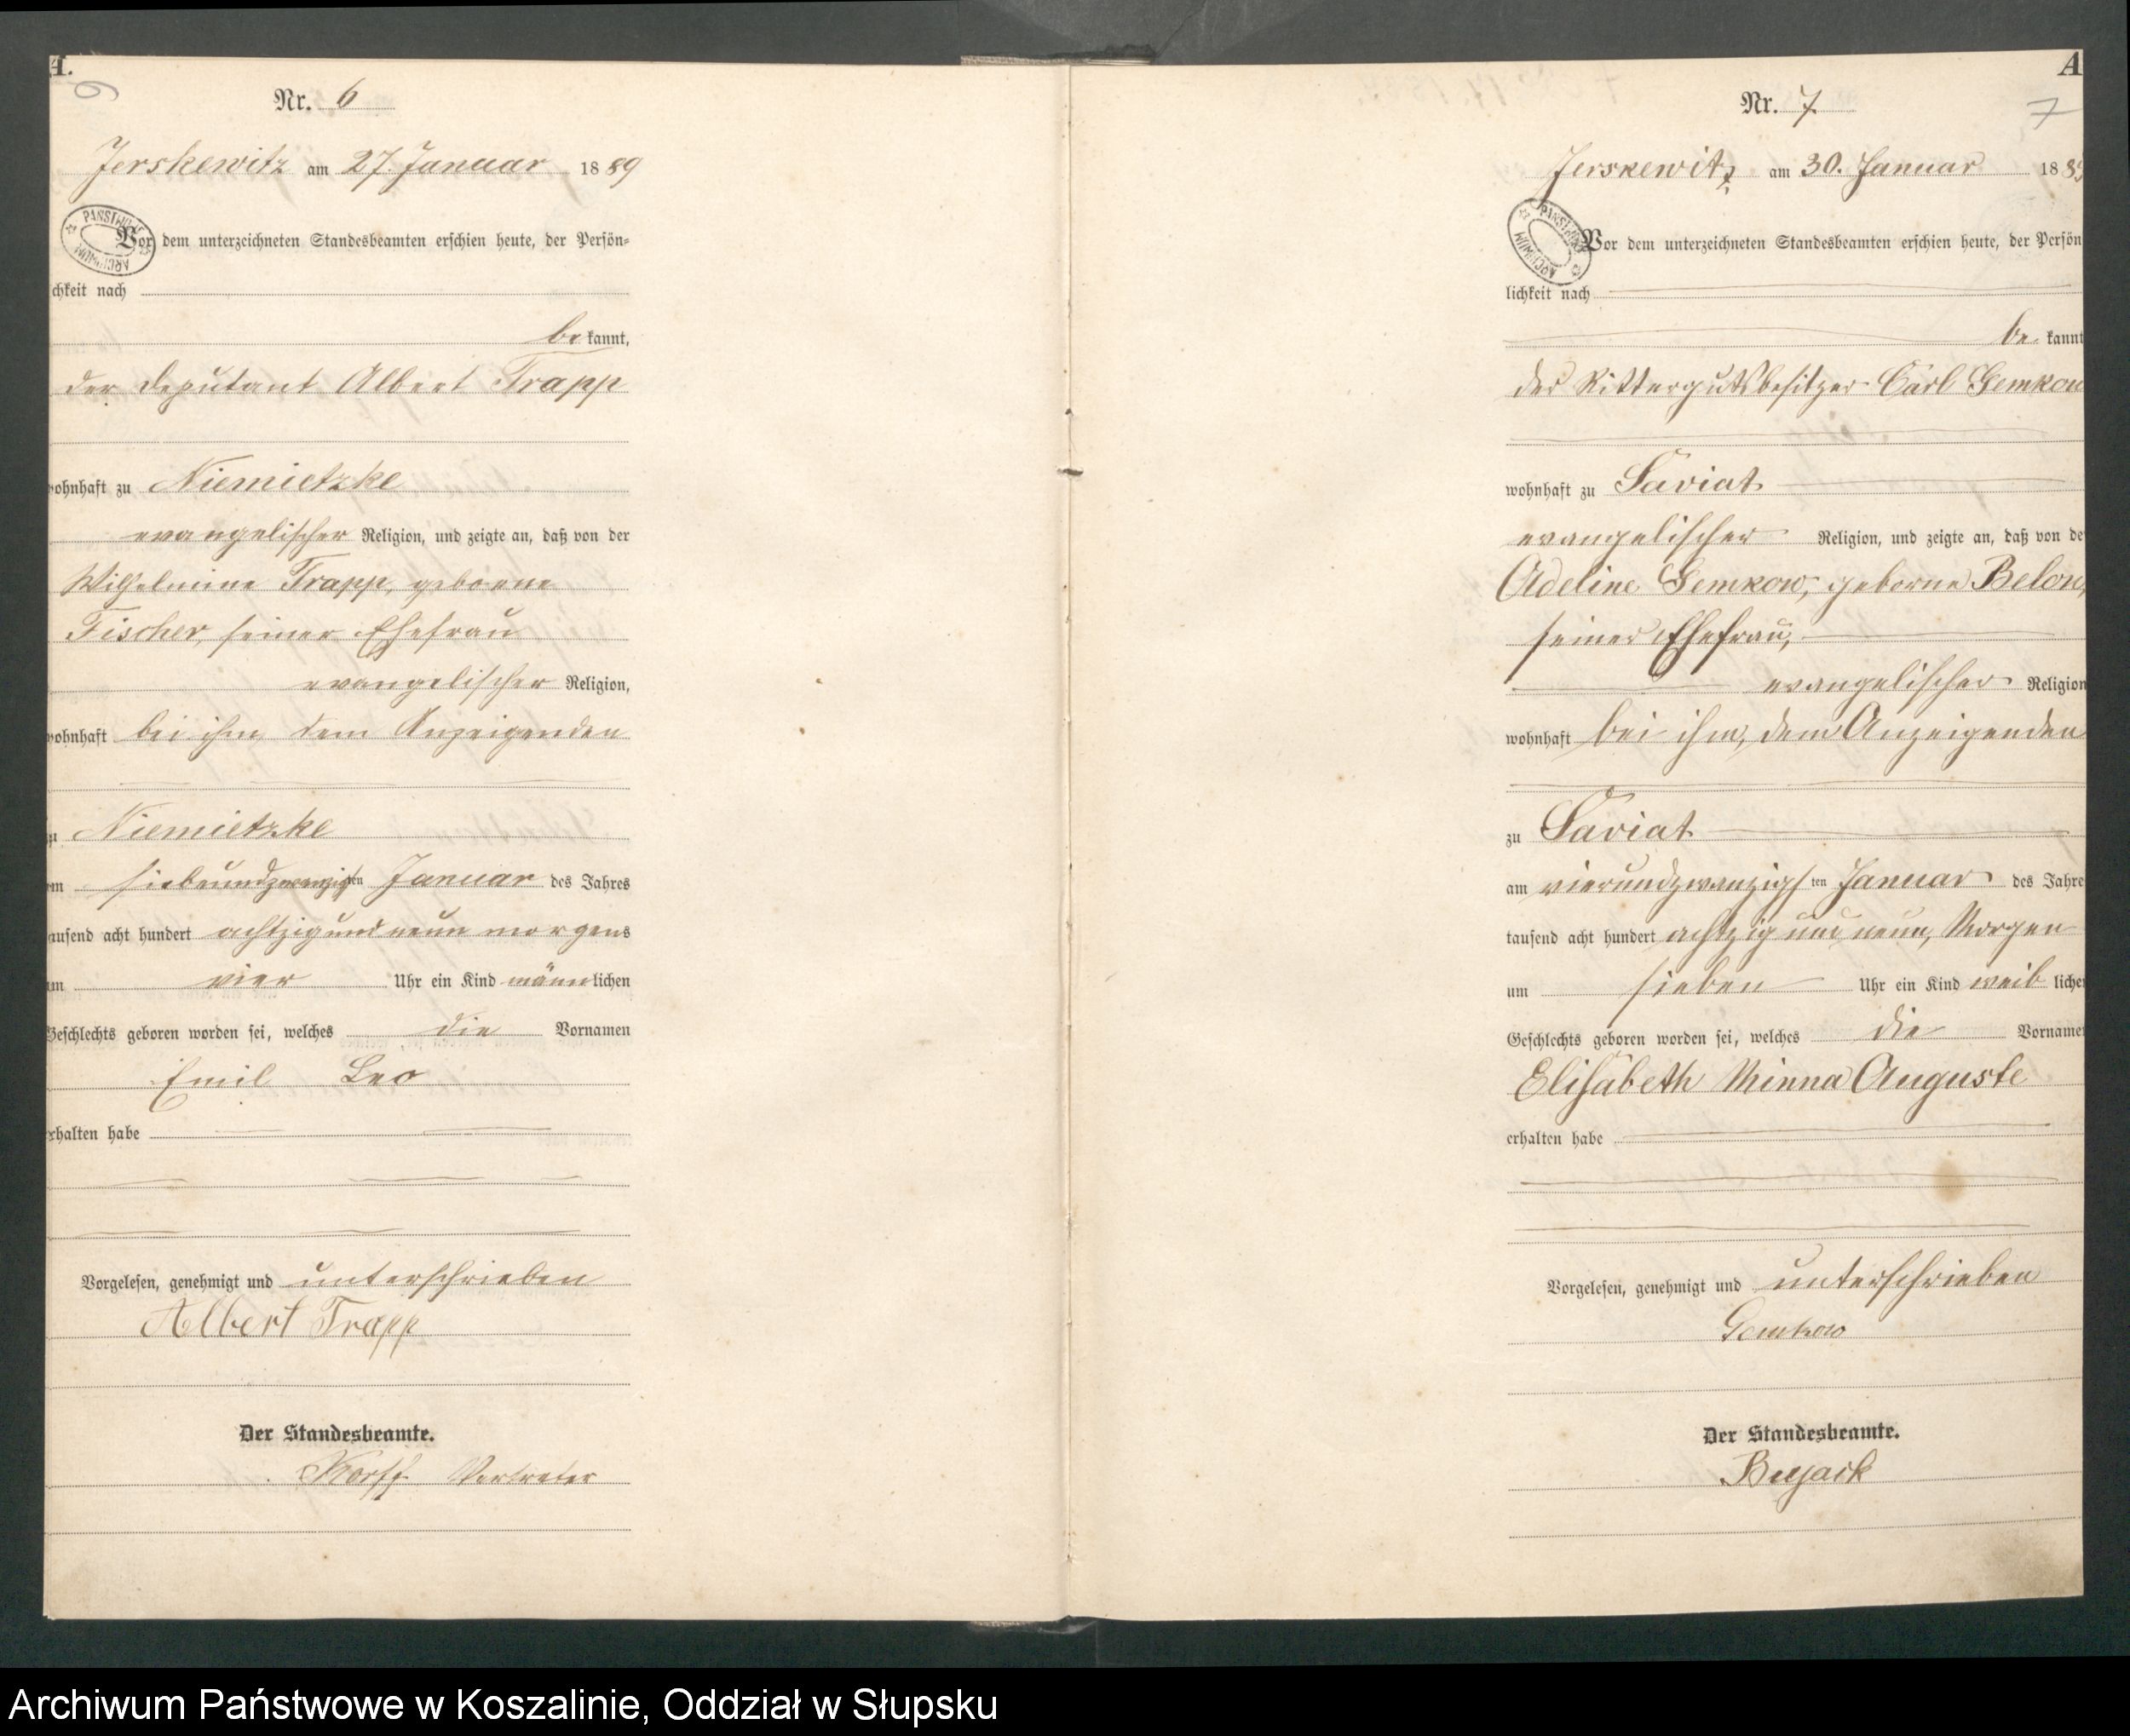 A.
6
Nr. 6
Jerskewitz am 27. Januar 1889
PAŃSTWOWE ARCHIWUM
Vor dem unterzeichneten Standesbeamten erschien heute, der Persön=
chkeit nach
be kannt,
der Deputant Albert Trapp
wohnhaft zu Niemietzke
evangelischer Religion, und zeigte an, daß von der
Wilhelmine Trapp, geborene
Fischer, seiner Ehefrau
evangelischer Religion,
wohnhaft bei ihm dem Anzeigenden
zu Niemietzke
am siebenundzwanzigsten Januar des Jahres
tausend acht hundert achtzig und neun morgens
um vier Uhr ein Kind männlichen
Geschlechts geboren worden sei, welches die Vornamen
Emil Leo
erhalten habe
Vorgelesen, genehmigt und unterschrieben
Albert Trapp
Der Standesbeamte.
Korff Vertreter
A
7
Nr. 7.
Jerskewitz am 30. Januar 188
PAŃSTWOWE ARCHIWUM
Vor dem unterzeichneten Standesbeamten erschien heute, der Persön
lichkeit nach
be kannt
der Rittergutsbesitzer Carl Gemkow
wohnhaft zu Saviat
evangelischer Religion, und zeigte an, daß von de
Adeline Gemkow, geborne Belou,
seiner Ehefrau,
evangelischer Religion
wohnhaft bei ihm, dem Anzeigenden
zu Saviat
am vierundzwanzigsten Januar des Jahre
tausend acht hundert achtzig und neun, Morgen
um sieben Uhr ein Kind weib liche
Geschlechts geboren worden sei, welches die Vorname
Elisabeth Minna Auguste
erhalten habe
Vorgelesen, genehmigt und unterschrieben
Gemkow
Der Standesbeamte.
Bujack
Archiwum Państwowe w Koszalinie, Oddział w Słupsku